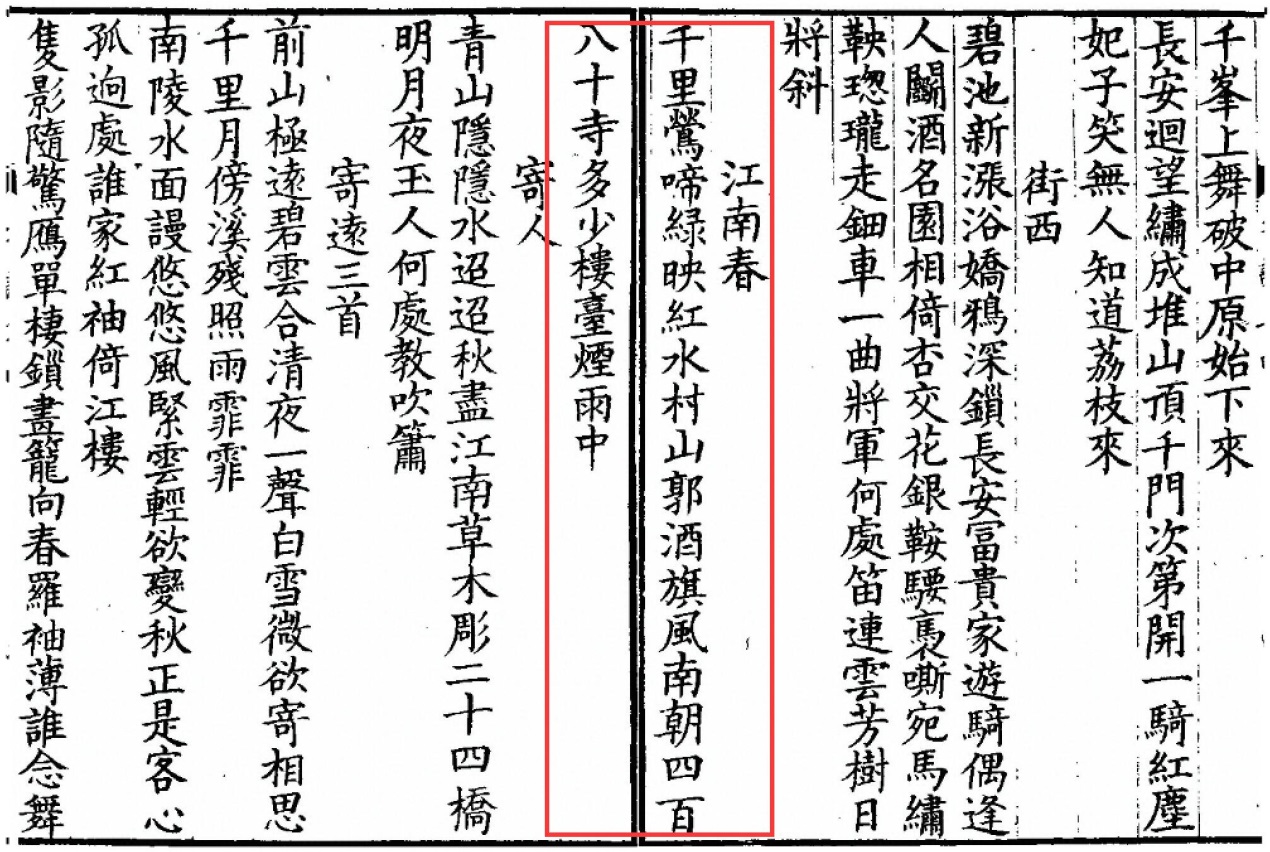 千峯上舞破中原始下來
長安迴望繡成堆山頂千門次第開一騎紅塵
妃子笑無人知道荔枝來
街西
碧池新漲浴嬌鴉深鎖長安富貴家遊騎偶逢
人鬭酒名園相倚杏交花銀鞍騕褭嘶宛馬繡
鞅璁瓏走鈿車一曲將軍何處笛連雲芳樹日
將斜
江南春
千里鶯啼緑映紅水村山郭酒旗風南朝四百
八十寺多少樓臺煙雨中
寄人
青山隱隱水迢迢秋盡江南草木彫二十四橋
明月夜玉人何處教吹簫
寄遠三首
前山極遠碧雲合清夜一聲白雪微欲寄相思
千里月傍溪殘照雨霏霏
南陵水面謾悠悠風緊雲輕欲變秋正是客心
孤迥處誰家紅袖倚江樓
隻影隨驚鴈單棲鎖晝籠向春羅袖薄誰念舞